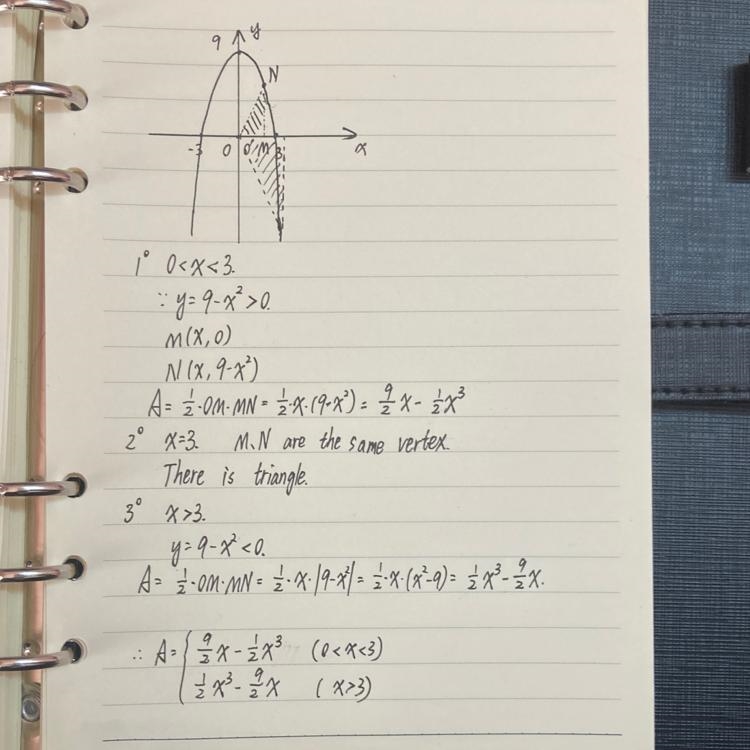 9 y
N
-3 0 M 3 x
1° 0<x<3.
∵ y=9-x²>0.
M(x,0)
N(x,9-x²)
A= 1/2·OM·MN= 1/2·x·(9-x²)= 9/2 x - 1/2 x³
2° x=3. M、N are the same vertex.
There is triangle.
3° x>3.
y=9-x²<0.
A= 1/2·OM·MN= 1/2·x·|9-x²|= 1/2·x·(x²-9)= 1/2 x³- 9/2 x.
∴ A= { 9/2 x - 1/2 x³ (0<x<3)
1/2 x³ - 9/2 x (x>3)